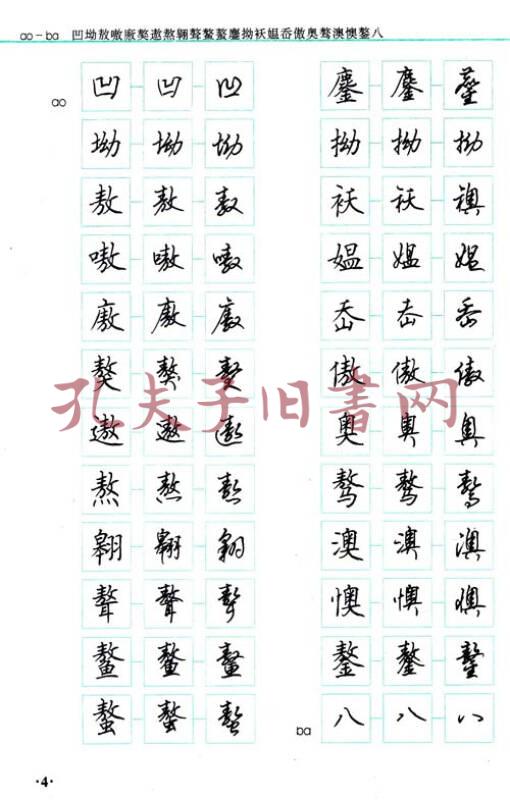 ao－ba 凹坳敖嗷廒獒遨熬翱聱鳌螯鏖拗袄媪岙傲奥骜澳懊鏊八
ao 凹 凹 凹
坳 坳 坳
敖 敖 敖
嗷 嗷 嗷
廒 廒 廒
獒 獒 獒
遨 遨 遨
熬 熬 熬
翱 翱 翱
聱 聱 聱
鳌 鳌 鳌
螯 螯 螯
鏖 鏖 鏖
拗 拗 拗
袄 袄 襖
媪 媪 媪
岙 岙 岙
傲 傲 傲
奥 奥 奥
骜 骜 骜
澳 澳 澳
懊 懊 懊
鏊 鏊 鏊
ba 八 八 八
孔夫子旧书网
·4·